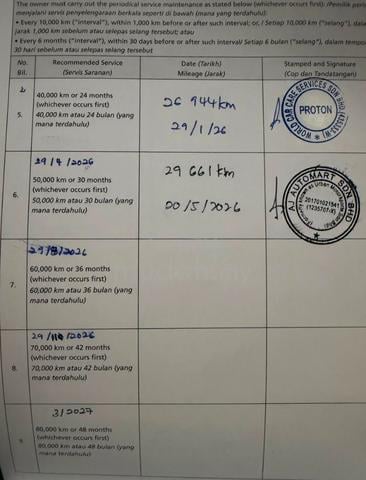 The owner must carry out the periodical service maintenance as stated below (whichever occurs first) /Pemilik
menjalani servis penyelengaraan berkala seperti di bawah (mana yang terdahulu):
• Every 10,000 km ("interval"), within 1,000 km before or after such interval; or, / Setiap 10,000 km ("selang"),
jarak 1,000 km sebelum atau selepas selang tersebut; atau
• Every 6 months ("interval"), within 30 days before or after such interval/ Setiap 6 bulan ("selang"), dalam
30 hari sebelum atau selepas selang tersebut
No. Recommended Service Date (Tarikh) Stamped and Signature
Bil. (Servis Saranan) Mileage (Jarak) (Cop dan Tandatangan)
5. 40,000 km or 24 months
(whichever occurs first)
40,000 km atau 24 bulan (yang
mana terdahulu)
26 944km
29/1/26
WORLD CAR CARE SERVICES SDN BHD
PROTON
29/4/2026
6. 50,000 km or 30 months
(whichever occurs first)
50,000 km atau 30 bulan (yang
mana terdahulu)
29 661km
20/5/2026
AJ AUTOMART SDN BHD
201701021541
29/8/2026
7. 60,000 km or 36 months
(whichever occurs first)
60,000 km atau 36 bulan (yang
mana terdahulu)
/2026
8. 70,000 km or 42 months
(whichever occurs first)
70,000 km atau 42 bulan (yang
mana terdahulu)
3/2027
9. 80,000 km or 48 months
(whichever occurs first)
80,000 km atau 48 bulan (yang
mana terdahulu)